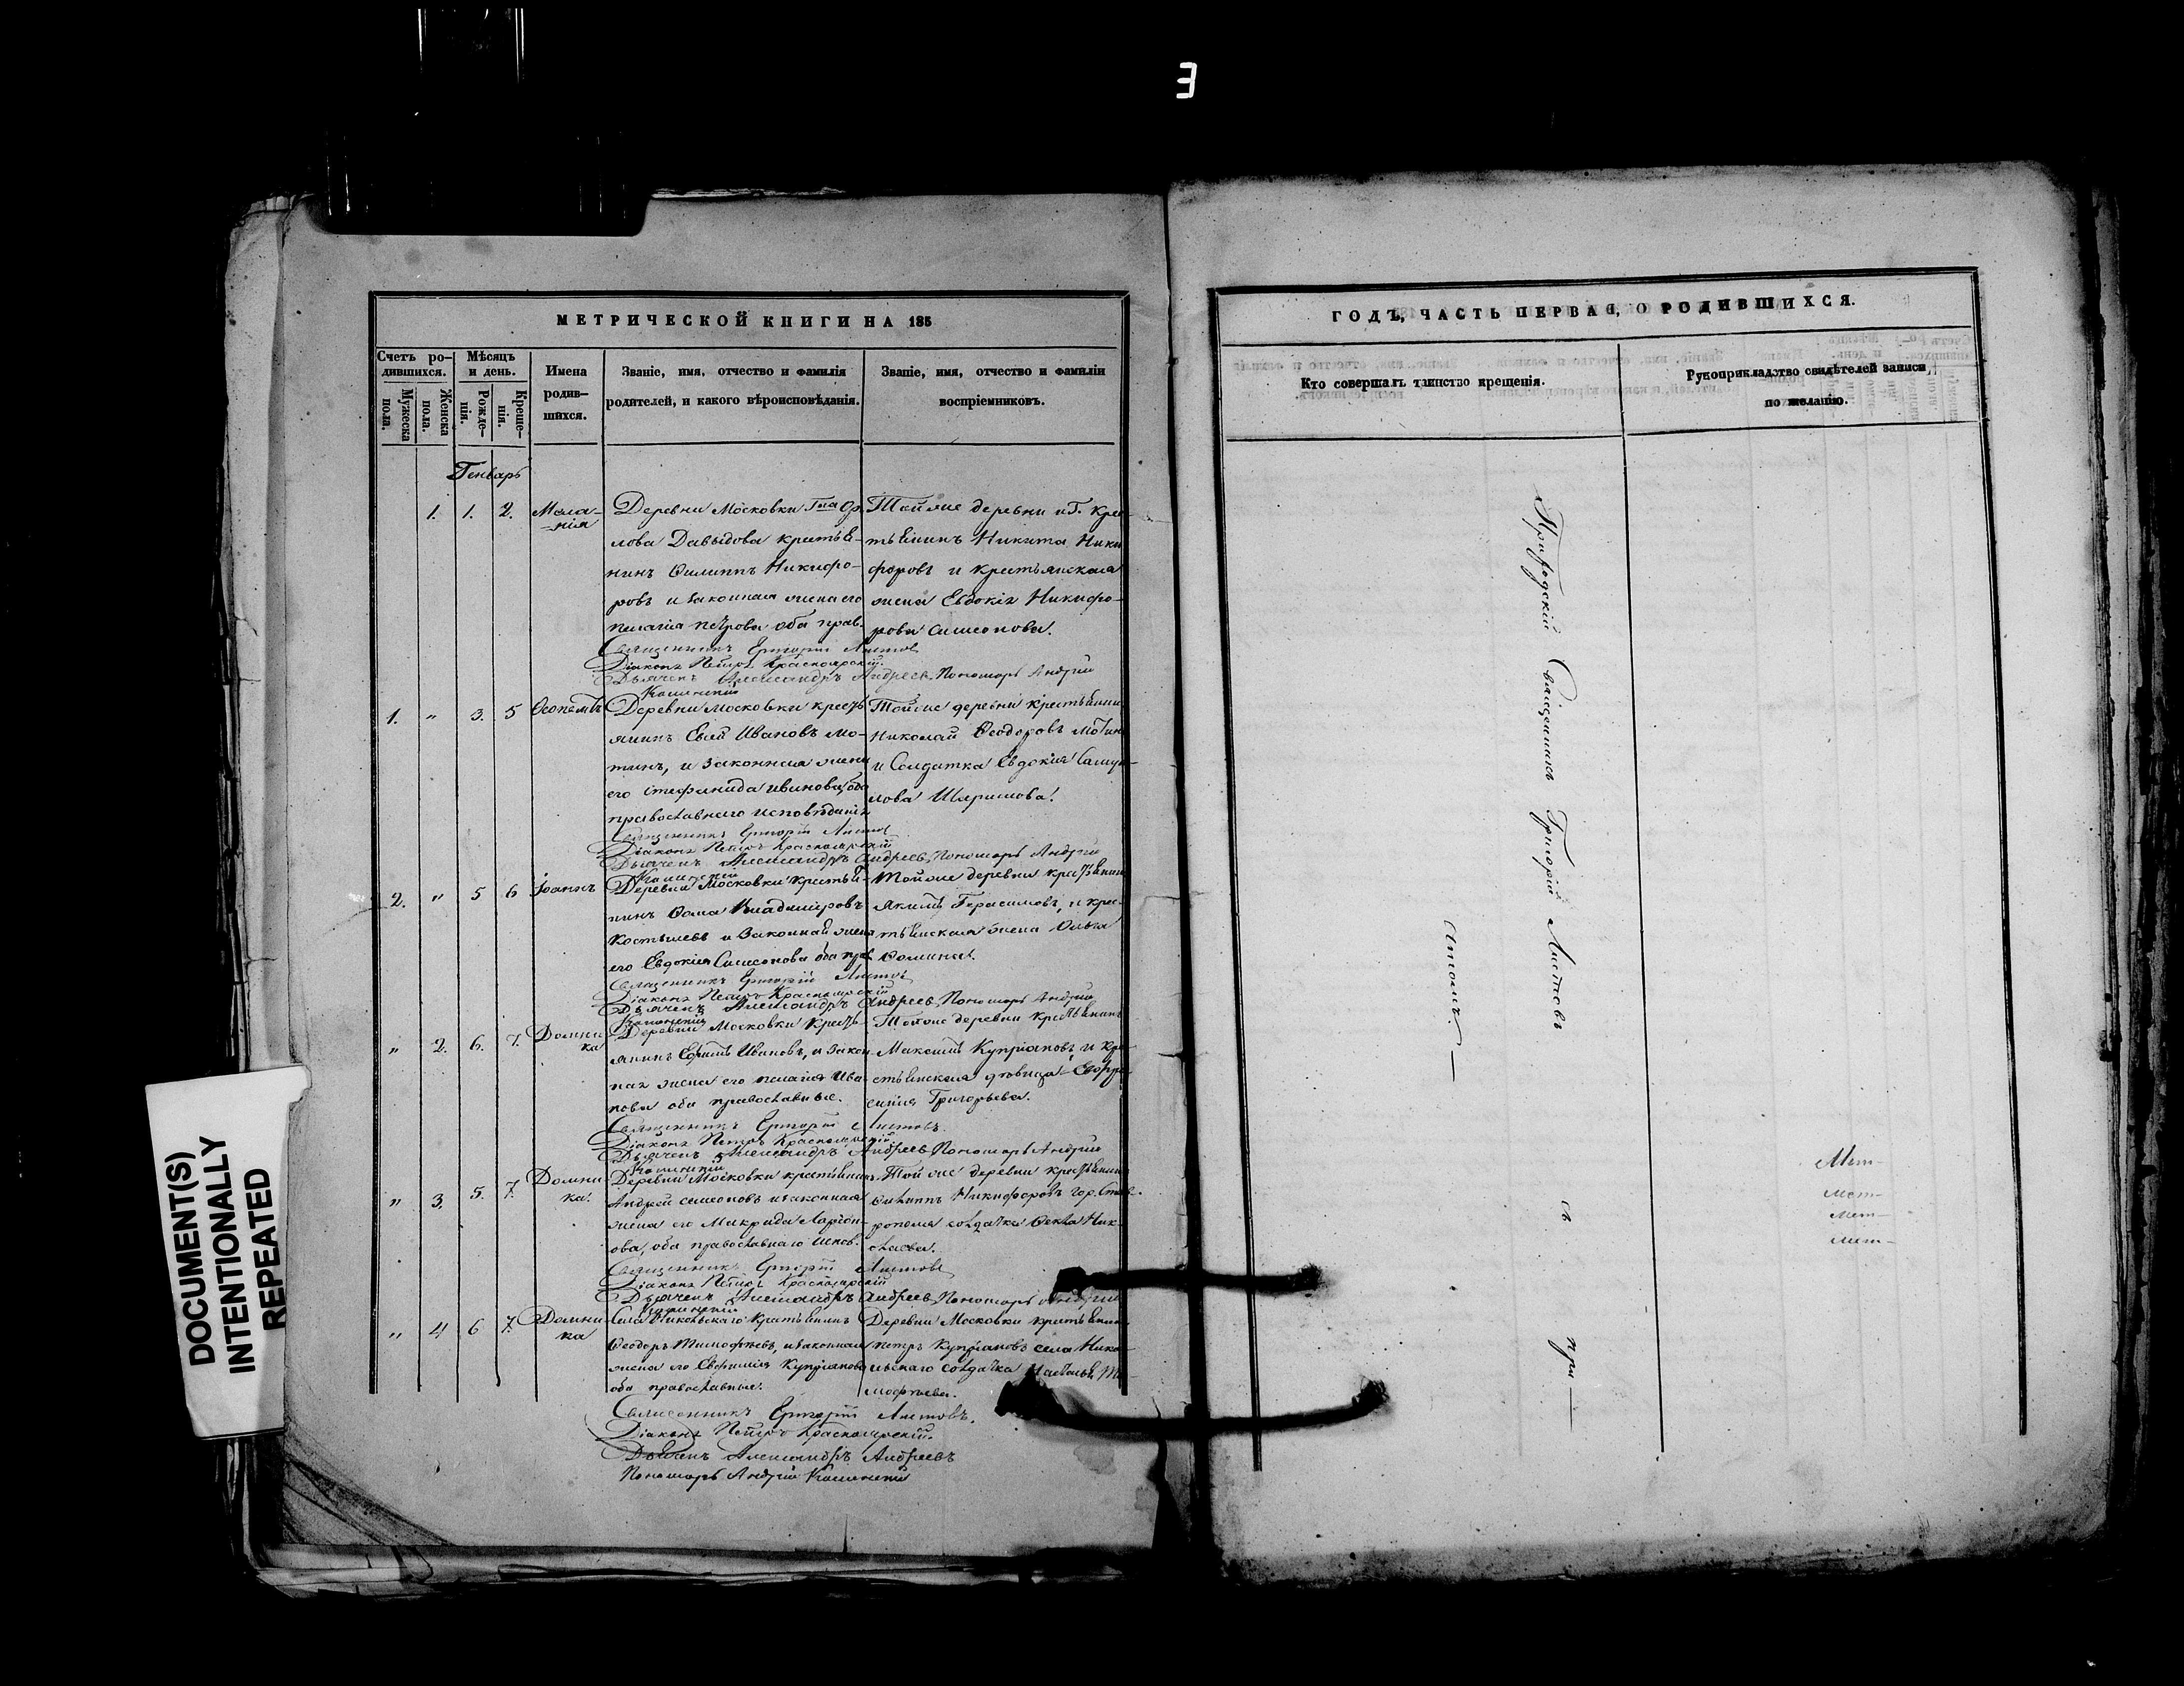 Е
DOCUMENT(S)
INTENTIONALLY
REPEATED
МЕТРИЧЕСКОЙ КНИГИ НА 185
Счетъ ро-
дившихся.
Мужеска
пола.
Женска
пола.
Мѣсяцъ
и день.
Рожде-
нія.
Креще-
нія.
Имена
родив-
шихся.
Званіе, имя, отчество и фамилія
родителей, и какого вѣроисповѣданія.
Званіе, имя, отчество и фамиліи
воспріемниковъ.
Генварь
1. 1. 2. Мела-
-нія
Деревни Московки
лова Давыдова крестья-
нинъ Филиппъ Никифо-
ровъ и законная жена его
Пелагія Петрова оба прав.
Той же деревни и Г. кре-
стьянинъ Никита Ники
форовъ и крестьянская
жена Евдокія Никифо-
рова Симеонова.
Священникъ Григорій Листовъ
Діаконъ Петръ Красноярскій.
Дьячекъ Александръ Андреевъ Пономарь Андрей
1. " 3. 5
Деревни Московки крест
янинъ Иванов Мо-
тинъ, и законная жена
его Стефанида Иванова, оба
православнаго исповѣданія
Той же деревни крестьянинъ
Николай Ѳеодоровъ Мотин
и Солдатка Евдокія Саму-
лова
Священникъ Григорій Листов
Діаконъ Петръ Красноярскій
Дьячекъ Александръ Андреевъ Пономарь Андрей
2. " 5 6 Іоаннъ
Деревни Московки крестья-
нинъ Ѳома Владиміровъ
Костылевъ и законная жена
его Евдокія Симеонова оба прав
Той же деревни крестьянин
Якимъ Герасимовъ, и крес-
тьянская жена Ольга
Ѳомина.
Священникъ Григорій Листов
Діаконъ Петръ Красноярскій
Дьячекъ Александръ Андреевъ Пономарь Андрей
" 2. 6. 7. Домни
ка
Деревни Московки кресть
янинъ Ефимъ Ивановъ, и закон
ная жена его Пелагія Ива-
нова оба православные.
Той же деревни крестьянинъ
Максимъ Купріяновъ и кре-
стьянская дѣвица Евфро-
синія Григорьева.
Священникъ Григорій Листовъ.
Діаконъ Петръ Красноярскій
Дьячекъ Александръ Андреевъ Пономарь Андрей
" 3. 5. 7. Домни
ка.
Деревни Московки крестьянинъ
Андрей Симеоновъ и законная
жена его Макрида Ларіон-
ова, оба православнаго испов.
Той же деревни крестьянинъ
Филиппъ Никифоровъ гор. Став-
рополя солдатка Ѳекла Ник-
олаева.
Священникъ Григорій Листовъ
Діаконъ Петръ Красноярскій
Дьячекъ Александръ Андреевъ Пономарь Андрей
" 4 6 7. Домни
ка
Села Никольскаго крестьянинъ
Ѳеодоръ Тимофѣевъ, и законная
жена его Евфимія Купріянова
оба православные.
Деревни Московки крестьянинъ
Петръ Купріяновъ села Нико-
льскаго солдатка Наталья Ти-
мофѣева.
Священникъ Григорій Листовъ.
Діаконъ Петръ Красноярскій.
Дьячекъ Александръ Андреевъ
Пономарь Андрей Каменскій
ГОДЪ, ЧАСТЬ ПЕРВАЯ, О РОДИВШИХСЯ.
Кто совершалъ таинство крещенія.
Рукоприкладство свидѣтелей записи
по желанію.
Священникъ Григорій Листовъ
съ при—
чтомъ.—